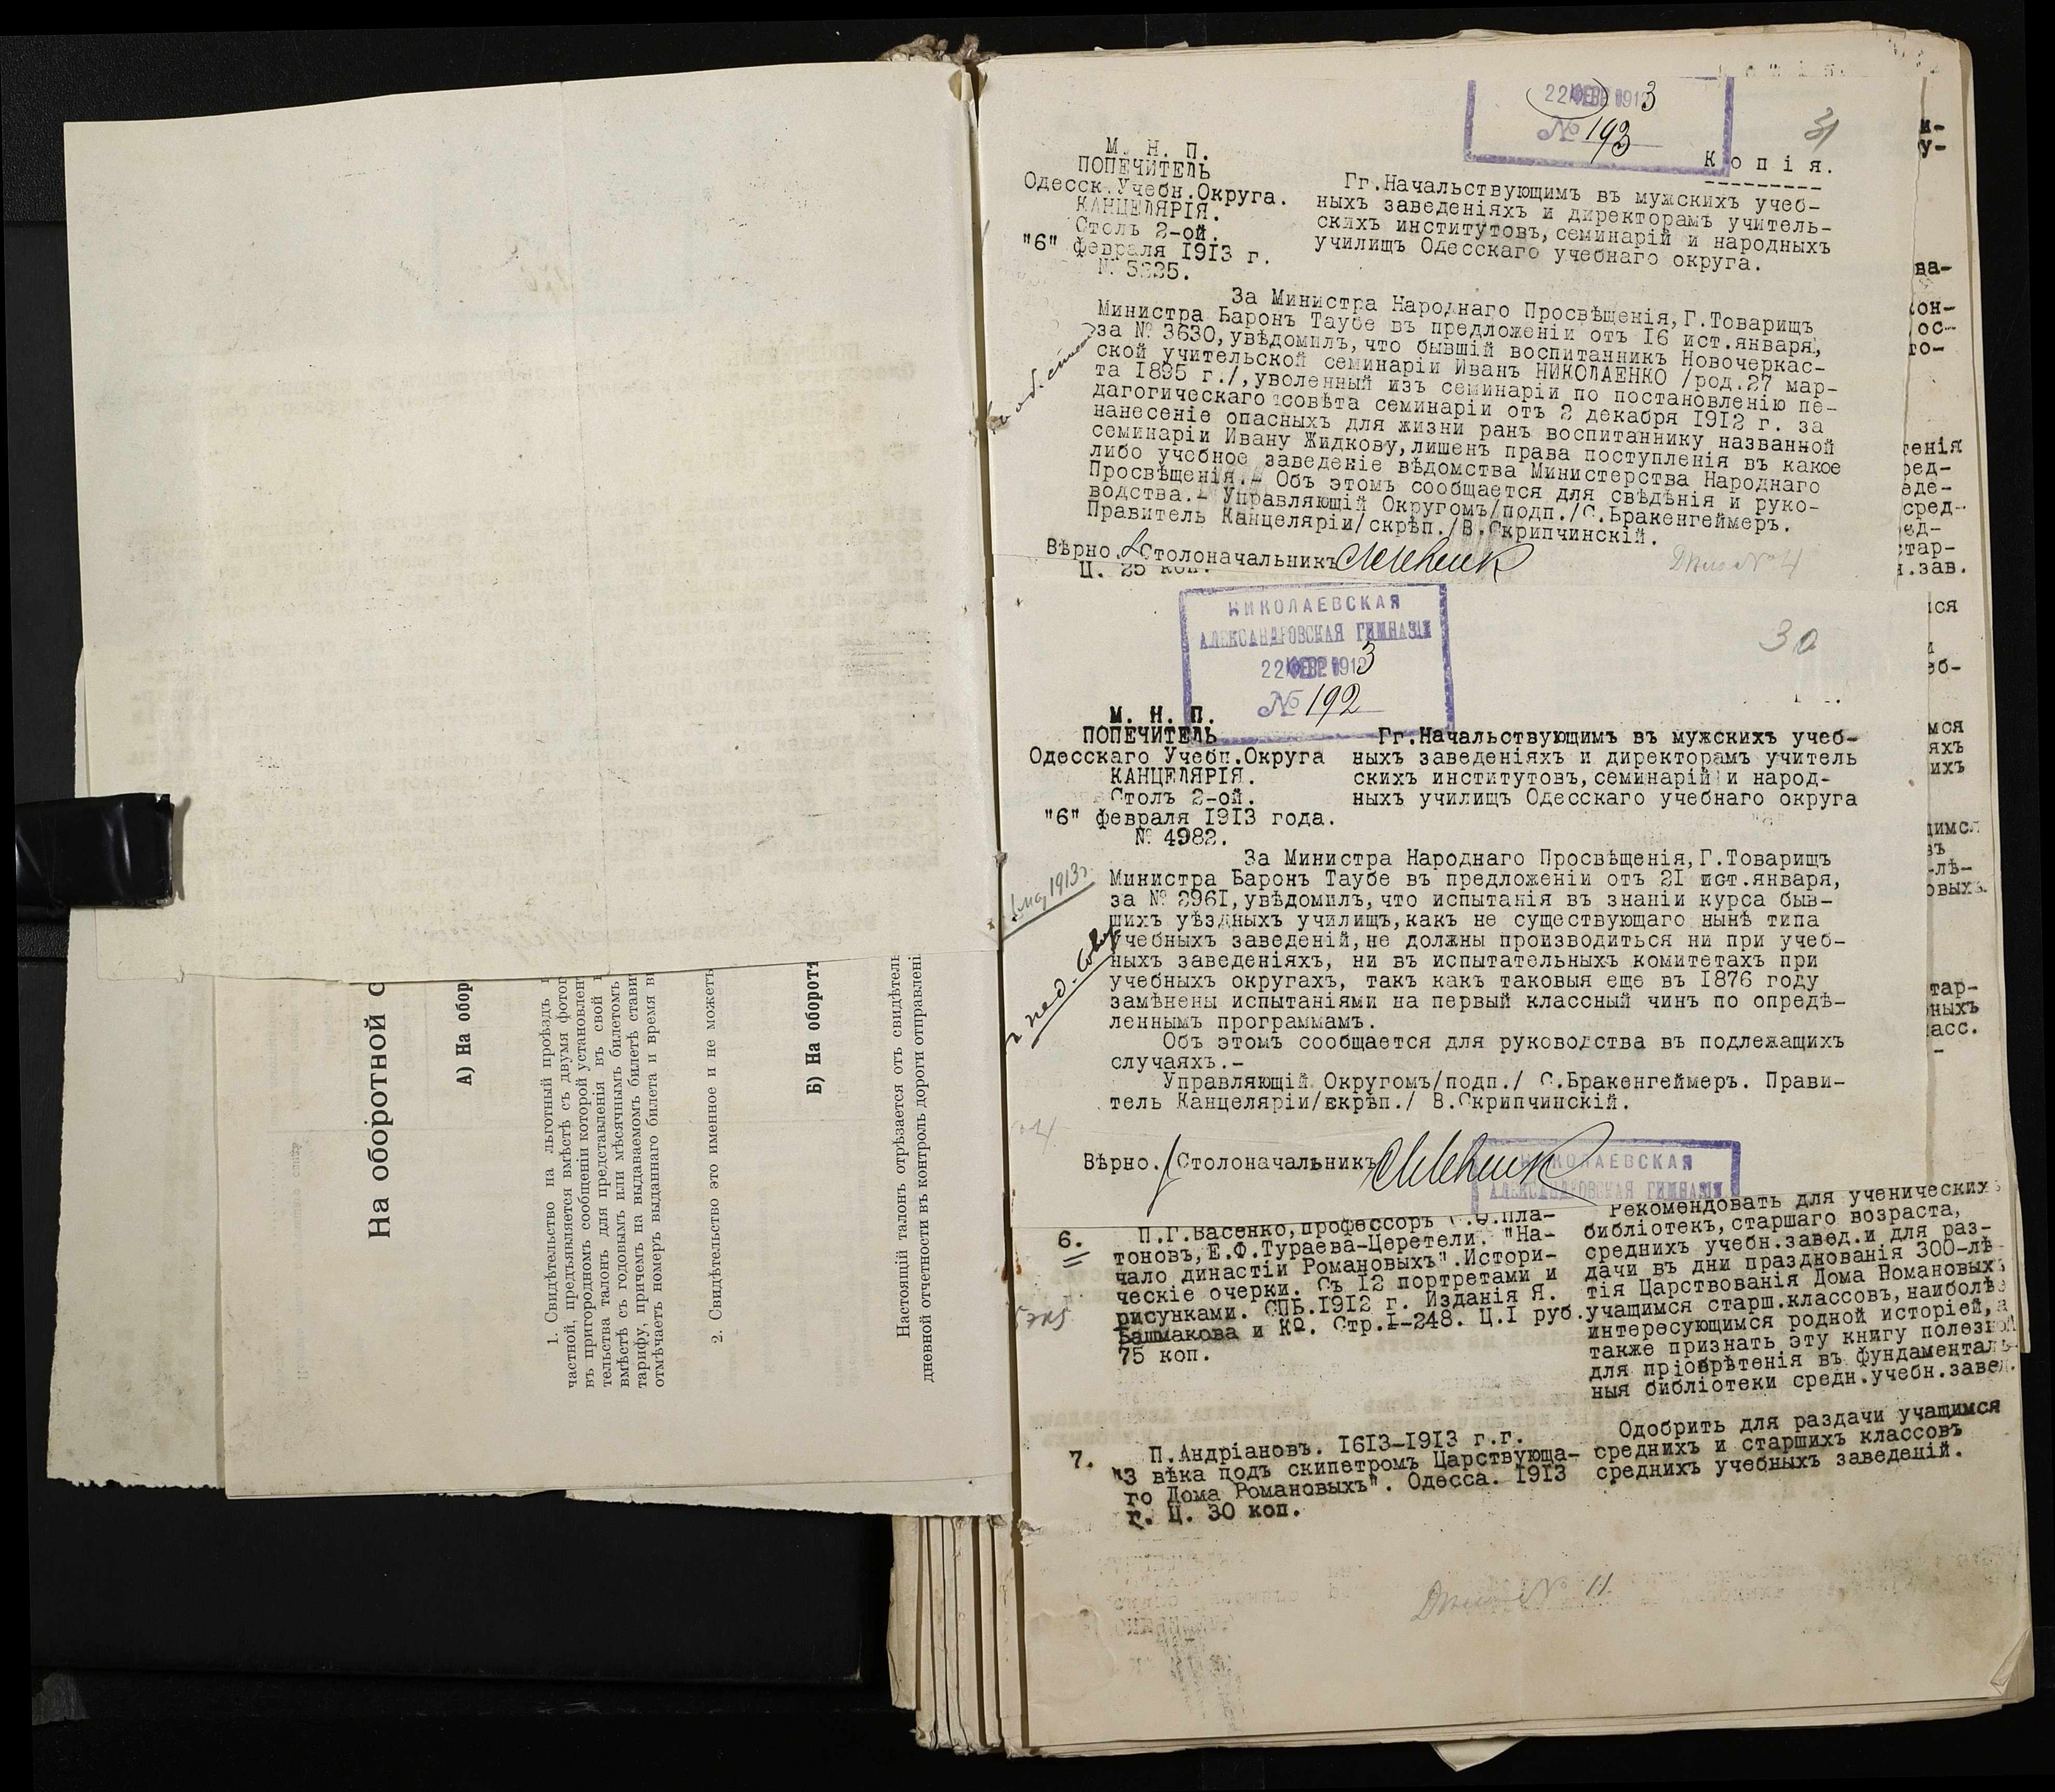 На оборотной с
А) На обор
1. Свидѣтельство на льготный проѣздъ
частной, предъявляется вмѣстѣ съ двумя фотог
въ пригородномъ сообщеніи которой установлен
тельства талонъ для представленія въ свой
вмѣстѣ съ годовымъ или мѣсячнымъ билетомъ
тарифу, причемъ на выдаваемомъ билетѣ стави
отмѣчаетъ номеръ выданнаго билета и время в
2. Свидѣтельство это именное и не можетъ
Б) На оборот
Настоящій талонъ отрѣзается отъ свидѣтель
дневной отчетности въ контроль дороги отправлені
1913
№ 193
31
Копія.
М. Н. П.
ПОПЕЧИТЕЛЬ
Одесск.Учебн.Округа.
КАНЦЕЛЯРІЯ.
Столъ 2-ой.
"6" февраля 1913 г.
№ 5235.
Гг.Начальствующимъ въ мужскихъ учеб-
ныхъ заведеніяхъ и директорамъ учитель-
скихъ институтовъ,семинарій и народныхъ
училищъ Одесскаго учебнаго округа.
За Министра Народнаго Просвѣщенія,Г.Товарищъ
Министра Баронъ Таубе въ предложеніи отъ 16 ист.января,
за № 3630,увѣдомилъ,что бывшій воспитанникъ Новочеркас-
ской учительской семинаріи Иванъ НИКОЛАЕНКО /род.27 мар-
та 1895 г./,уволенный изъ семинаріи по постановленію пе-
дагогическаго совѣта семинаріи отъ 2 декабря 1912 г. за
нанесеніе опасныхъ для жизни ранъ воспитаннику названной
семинаріи Ивану Жидкову,лишенъ права поступленія въ какое
либо учебное заведеніе вѣдомства Министерства Народнаго
Просвѣщенія.- Объ этомъ сообщается для свѣдѣнія и руко-
водства.- Управляющій Округомъ/подп./С.Бракенгеймеръ.
Правитель Канцеляріи/скрѣп./В.Скрипчинскій.
Вѣрно. Столоначальникъ
Дѣло № 4
Ц. 25 коп.
НИКОЛАЕВСКАЯ
АЛЕКСАНДРОВСКАЯ ГИМНАЗІЯ
22 1913
№ 192
30
М. Н. П.
ПОПЕЧИТЕЛЬ
Одесскаго Учебн.Округа
КАНЦЕЛЯРІЯ.
Столъ 2-ой.
"6" февраля 1913 года.
№ 4982.
Гг.Начальствующимъ въ мужскихъ учеб-
ныхъ заведеніяхъ и директорамъ учитель
скихъ институтовъ,семинарій и народ-
ныхъ училищъ Одесскаго учебнаго округа
За Министра Народнаго Просвѣщенія,Г.Товарищъ
Министра Баронъ Таубе въ предложеніи отъ 21 ист.января,
за № 2961,увѣдомилъ,что испытанія въ знаніи курса быв-
шихъ уѣздныхъ училищъ,какъ не существующаго нынѣ типа
учебныхъ заведеній,не должны производиться ни при учеб-
ныхъ заведеніяхъ, ни въ испытательныхъ комитетахъ при
учебныхъ округахъ, такъ какъ таковыя еще въ 1876 году
замѣнены испытаніями на первый классный чинъ по опредѣ-
леннымъ программамъ.
Объ этомъ сообщается для руководства въ подлежащихъ
случаяхъ.-
Управляющій Округомъ/подп./ С.Бракенгеймеръ. Прави-
тель Канцеляріи/скрѣп./ В.Скрипчинскій.
Вѣрно. Столоначальникъ
НИКОЛАЕВСКАЯ
АЛЕКСАНДРОВСКАЯ ГИМНАЗІЯ
6.
П.Г.Васенко,профессоръ С.Ѳ.Пла-
тоновъ,Е.Ф.Тураева-Церетели. "На-
чало династіи Романовыхъ".Истори-
ческіе очерки. Съ 12 портретами и
рисунками. СПБ.1912 г. Изданія Я.
Башмакова и Ко. Стр.1-248. Ц.1 руб.
75 коп.
Рекомендовать для ученическихъ
библіотекъ,старшаго возраста,
среднихъ учебн.завед.и для раз-
дачи въ дни празднованія 300-лѣ-
тія Царствованія Дома Романовыхъ
учащимся старш.классовъ,наиболѣе
интересующимся родной исторіей,а
также признать эту книгу полезной
для пріобрѣтенія въ фундаменталь-
ныя библіотеки средн.учебн.завед.
7.
П.Андріановъ. 1613-1913 г.г.
"3 вѣка подъ скипетромъ Царствующа-
го Дома Романовыхъ". Одесса. 1913
г. Ц. 30 коп.
Одобрить для раздачи учащимся
среднихъ и старшихъ классовъ
среднихъ учебныхъ заведеній.
Дѣло № 11.